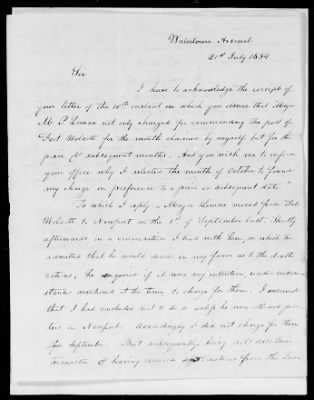 Watertown Arsenal
21st July 1834
Sir
I have to acknowledge the receipt of
your letter of the 10th instant in which you assert that Major
M P Lomax not only charged for commanding the post of
Fort Wolcott for the month claimed by myself but for the
prior & subsequent months. And you wish me to inform
your office why I selected the month of October to found
my charge in preference to a prior or subsequent date"
To which I reply - Major Lomax moved from Fort
Wolcott to Newport on the 1st of September last. Shortly
afterwards in a conversation I had with him, in which he
remarked that he would decide in my favor as to the double
rations, he enquired if it was my intention, under circum
stances mentioned at the time to charge for them. I answered
that I had concluded not to do so while he was allowed quar
ters in Newport. Accordingly I did not charge for them
for September. But subsequently, being
& having received instructions from the